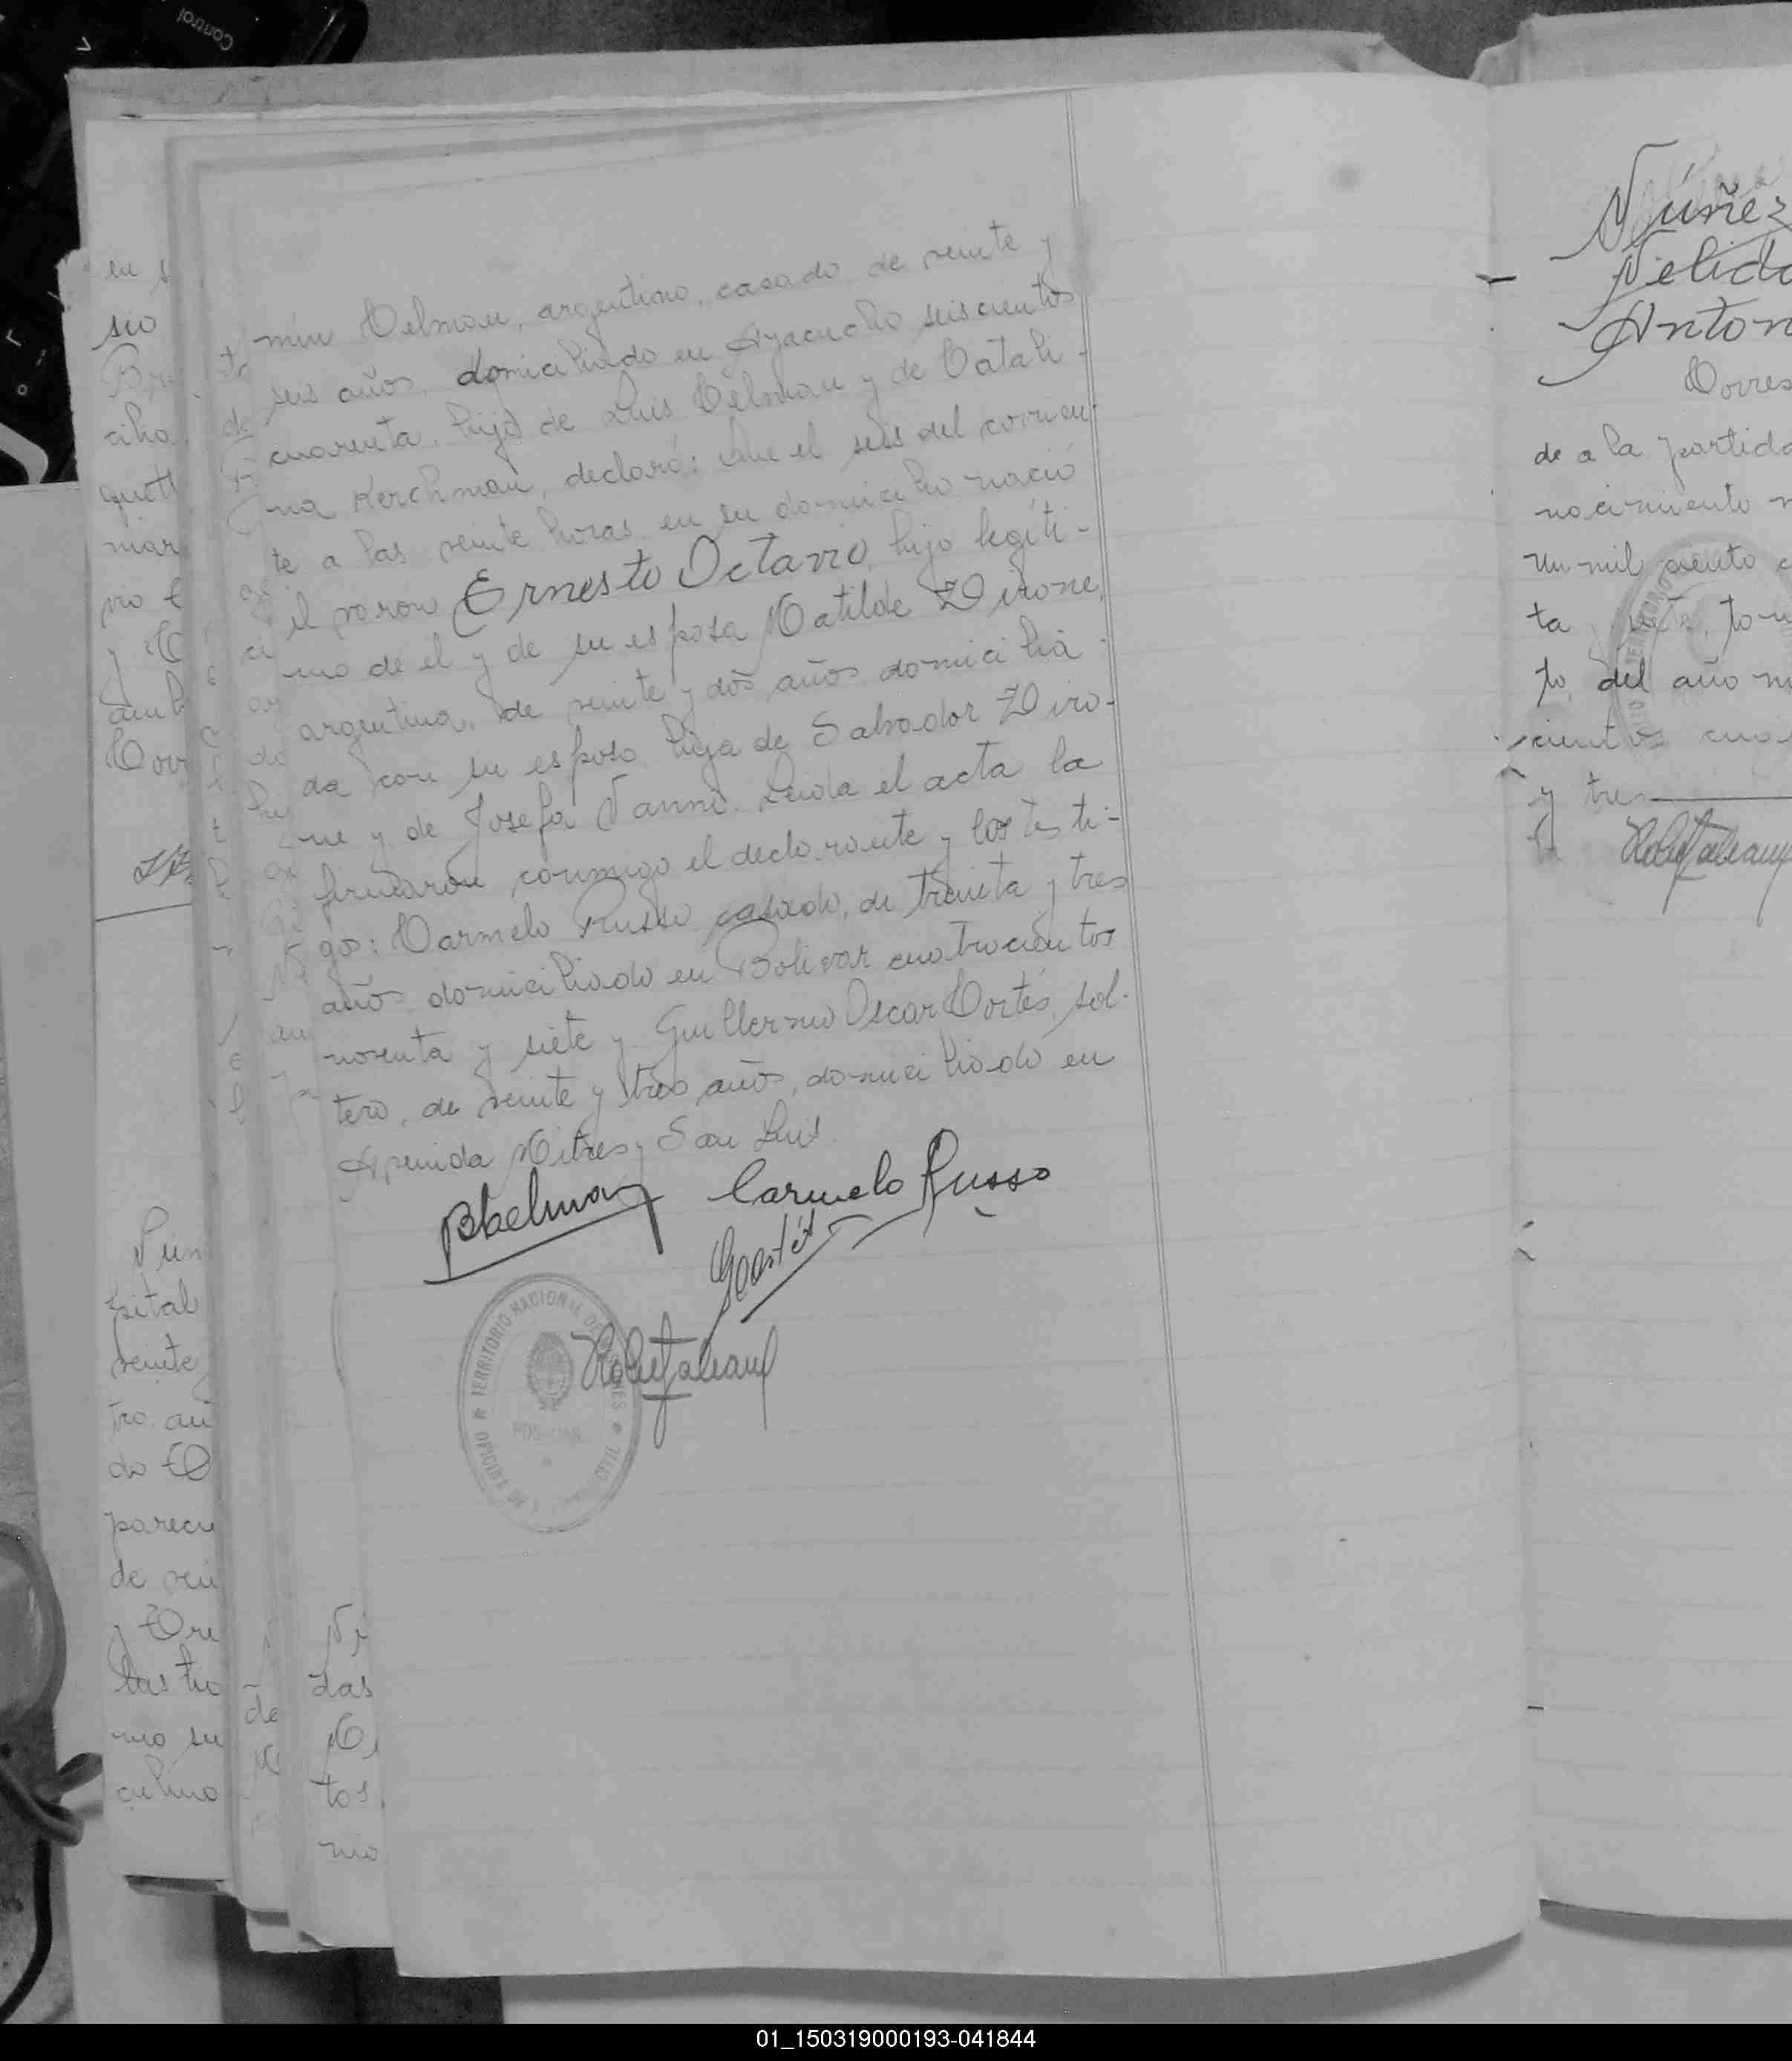 Control
mín Celman, argentino, casado, de veinte y
seis años, domiciliado en Ayacucho seiscientos
cuarenta, hijo de Luis Celman y de Catali-
na Kerchman, declaró: Que el seis del corrien-
te a las veinte horas en su domicilio nació
el varón Ernesto Octavio, hijo legíti-
mo de él y de su esposa Matilde Dirone,
argentina, de veinte y dos años, domicilia-
da con su esposo, hija de Salvador Diro-
ne y de Josefa Vanni. Leída el acta la
firmaron conmigo el declarante y los testi-
gos: Carmelo Russo, casado, de treinta y tres
años domiciliado en Bolivar cuatrocientos
noventa y siete y Guillermo Oscar Cortés, sol-
tero, de veinte y tres años, domiciliado en
Avenida Mitre y San Luis.
BCelman
Carmelo Russo
GCortés
TERRITORIO NACIONAL DE MISIONES
OFICINA
CIVIL
POSADAS
Núñez
Nelida
Anton
Corres
de a la partida
nacimiento n
un mil ciento c
ta y siete, tom
to, del año m
cientos cua
y tres
en s
sio
cilio
mar
pital
veinte
tro añ
do
parecu
de vei
mo su
culino
de
das
tos
mo
01_150319000193-041844